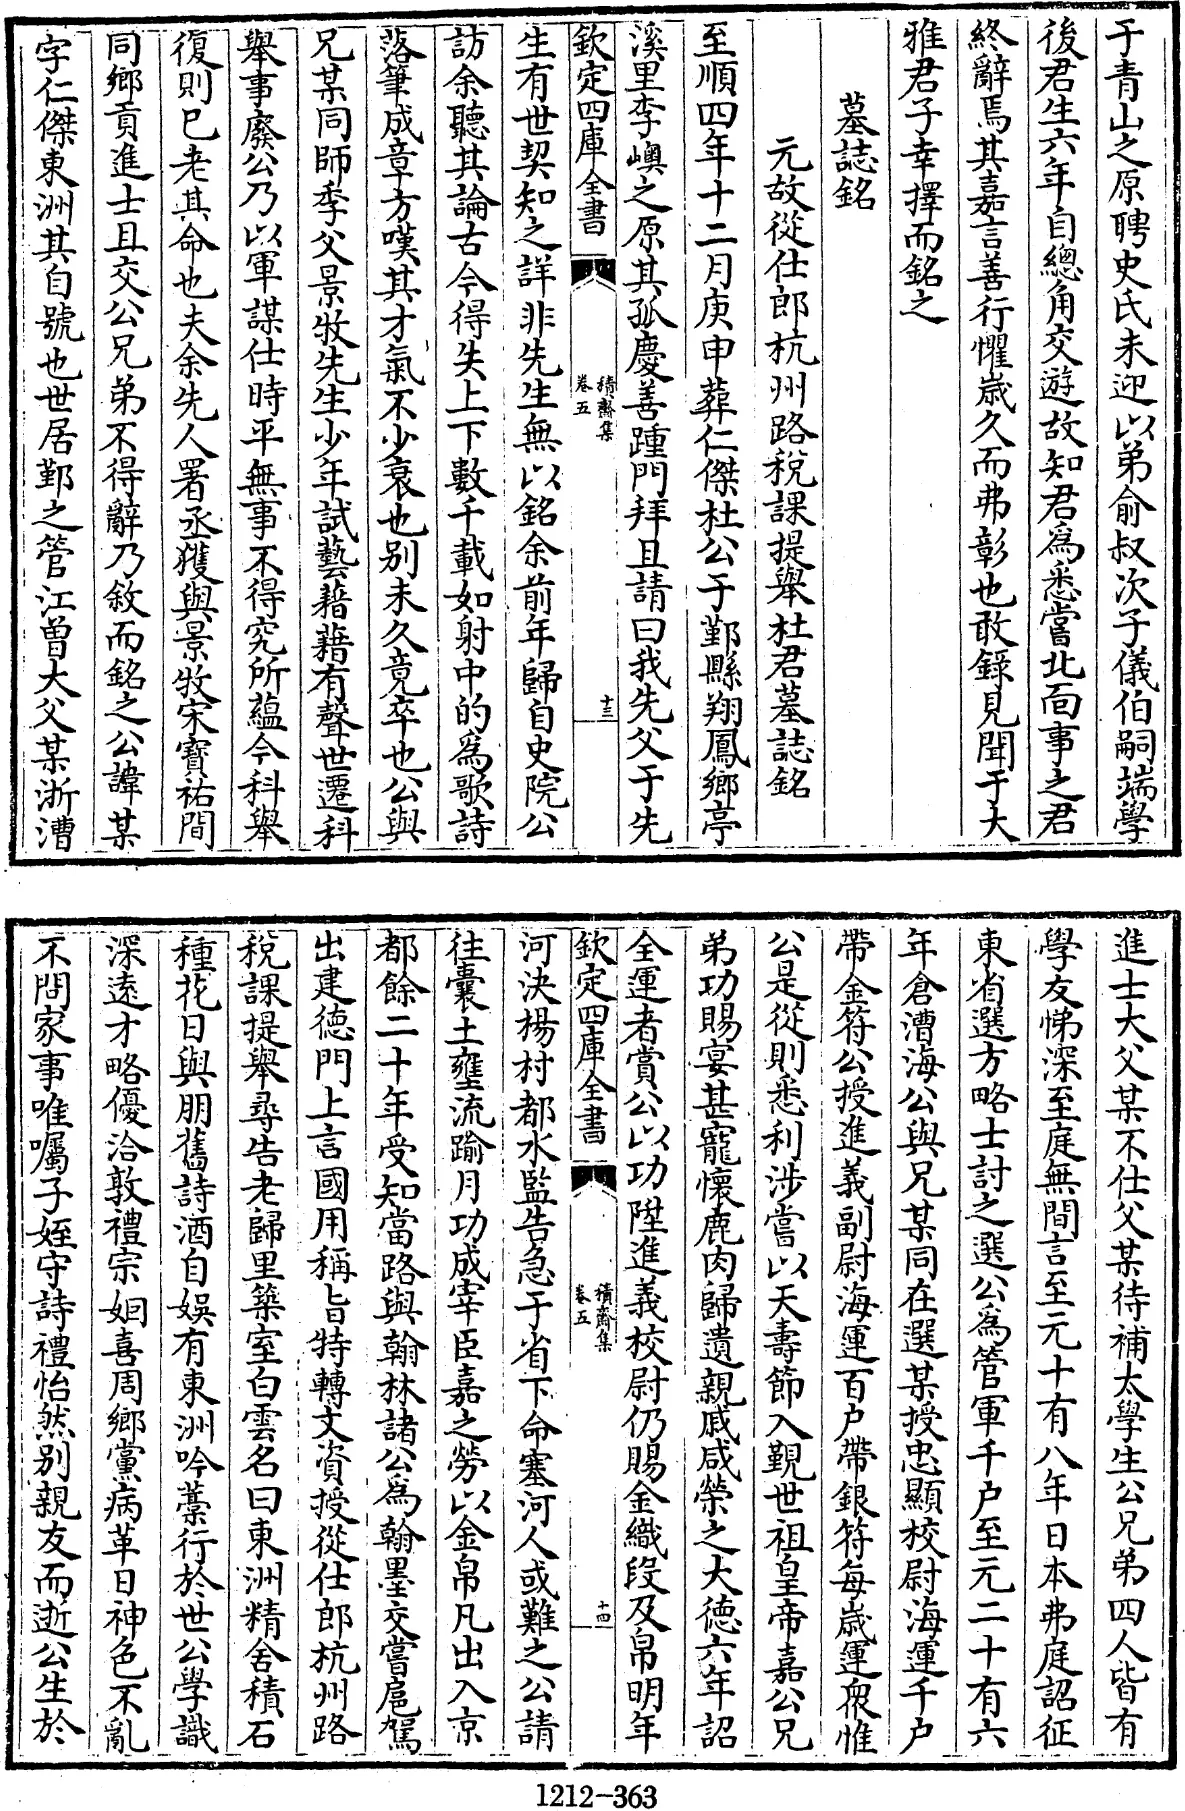 于青山之原聘史氏未迎以弟俞叔次子儀伯嗣端學
後君生六年自總角交遊故知君爲悉嘗北面事之君
終辭焉其嘉言善行懼歲久而弗彰也敢錄見聞于大
雅君子幸擇而銘之
墓誌銘
元故從仕郎杭州路稅課提舉杜君墓誌銘
至順四年十二月庚申葬仁傑杜公于鄞縣翔鳳鄉亭
溪里李嶼之原其孤慶善踵門拜且請曰我先父于先
欽定四庫全書
積齋集
卷五
十三
生有世契知之詳非先生無以銘余前年歸自史院公
訪余聽其論古今得失上下數千載如射中的爲歌詩
落筆成章方嘆其才氣不少衰也别未久竟卒也公與
兄某同師季父景牧先生少年試藝藉藉有聲世遷科
舉事廢公乃以軍謀仕時平無事不得究所蘊今科舉
復則已老其命也夫余先人署丞獲與景牧宋寶祐間
同鄉貢進士且交公兄弟不得辭乃敘而銘之公諱某
字仁傑東洲其自號也世居鄞之管江曽大父某浙漕
進士大父某不仕父某待補太學生公兄弟四人皆有
學友悌深至庭無間言至元十有八年日本弗庭詔征
東省選方略士討之選公爲管軍千户至元二十有六
年倉漕海公與兄某同在選某授忠顯校尉海運千户
帶金符公授進義副尉海運百户帶銀符每歲運衆惟
公是從則悉利涉嘗以天壽節入覲世祖皇帝嘉公兄
弟功賜宴甚寵懷鹿肉歸遺親戚咸榮之大德六年詔
全運者賞公以功陞進義校尉仍賜金織段及帛明年
欽定四庫全書
積齋集
卷五
十四
河決楊村都水監告急于省下命塞河人或難之公請
往囊土壅流踰月功成宰臣嘉之勞以金帛凡出入京
都餘二十年受知當路與翰林諸公爲翰墨交嘗扈駕
出建德門上言國用稱旨特轉文資授從仕郎杭州路
稅課提舉尋告老歸里築室白雲名曰東洲精舍積石
種花日與朋舊詩酒自娛有東洲吟藁行於世公學識
深遠才略優洽敦禮宗姻喜周鄉黨病革日神色不亂
不問家事唯囑子姪守詩禮怡然别親友而逝公生於
1212-363